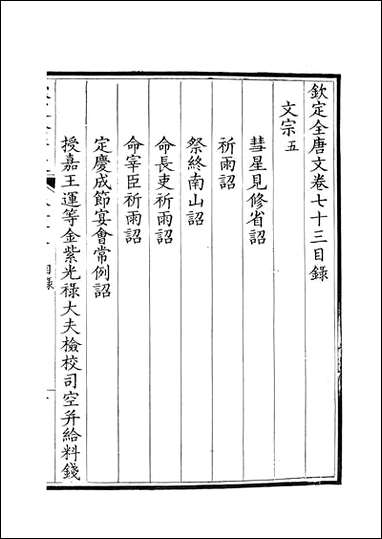 欽定全唐文卷七十三目錄
文宗五
彗星見修省詔
祈雨詔
祭終南山詔
命長吏祈雨詔
命宰臣祈雨詔
定慶成節宴會常例詔
授嘉王運等金紫光祿大夫檢校司空幷給料錢
目錄